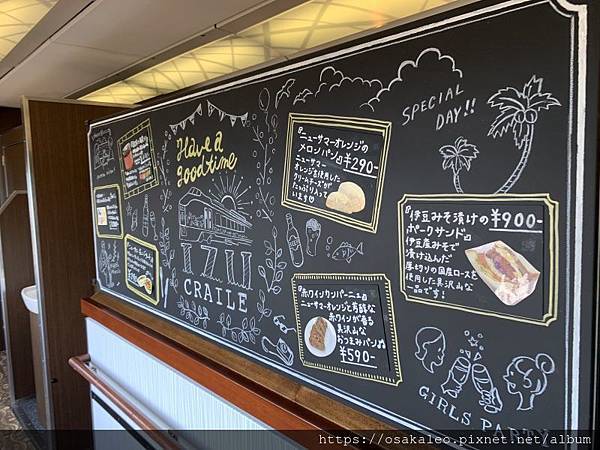 Have a
good time
IZU
CRAILE
『ニューサマーオレンジの
メロンパン』¥290-
ニューサマー
オレンジを使用した
クリームチーズが
たっぷり入って
います☺
SPECIAL
DAY!!
『伊豆みそ漬けの ¥900-
ポークサンド』
伊豆産みそで
漬け込んだ
厚切りの国産ロースを
使用した贅沢な
一品です!
『赤ワインカンパーニュ』
ニューサマーオレンジと芳醇な
赤ワインが香る
贅沢な
おつまみパン
¥590-
GIRLS PARTY
https://osakaleo.pixnet.net/album